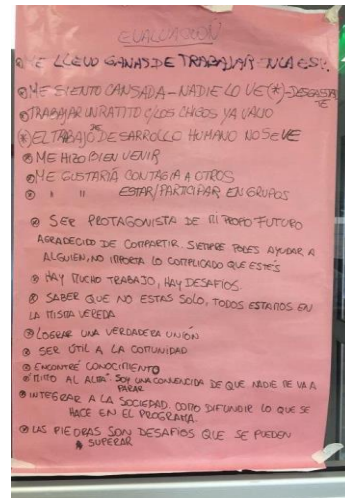 EVALUACIÓN
ME LLEVO GANAS DE TRABAJAR EN LA ESC.
ME SIENTO CANSADA - NADIE LO VE (*) - DESGASTA
TE
TRABAJAR UN RATITO C/LOS CHICOS YA VALIO
(*) EL TRABAJO DE DESARROLLO HUMANO NO SE VE
ME HIZO BIEN VENIR
ME GUSTARIA CONTAGIA A OTROS
" " ESTAR/PARTICIPAR EN GRUPOS
SER PROTAGONISTA DE MI PROPO FUTURO
AGRADECIDO DE COMPARTIR. SIEMPRE PODES AYUDAR A
ALGUIEN, NO IMPORTA LO COMPLICADO QUE ESTÉS
HAY MUCHO TRABAJO, HAY DESAFIOS.
SABER QUE NO ESTAS SOLO, TODOS ESTAMOS EN
LA MISMA VEREDA
LOGRAR UNA VERDADERA UNIÓN
SER ÚTIL A LA COMUNIDAD
ENCONTRÉ CONOCIMIENTO
MITO AL ALTA. SOY UNA CONVENCIDA DE QUE NADIE ME VA A
PARAR
INTEGRAR A LA SOCIEDAD. COMO DIFUNDIR LO QUE SE
HACE EN EL PROGRAMA.
LAS PIEDRAS SON DESAFIOS QUE SE PUEDEN
SUPERAR